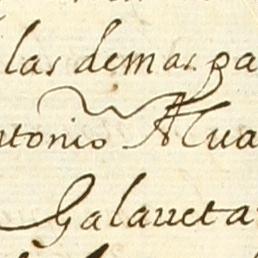 las demas pa
ntonio Alua
Galaueta